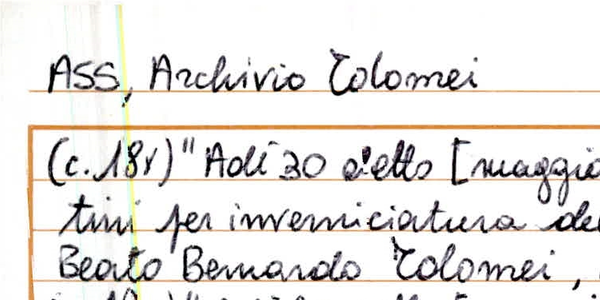 ASS, Archivio Tolomei
(c. 18r) "Adì 30 detto [maggio
tini per inverniciatura de
Beato Bernardo Tolomei,